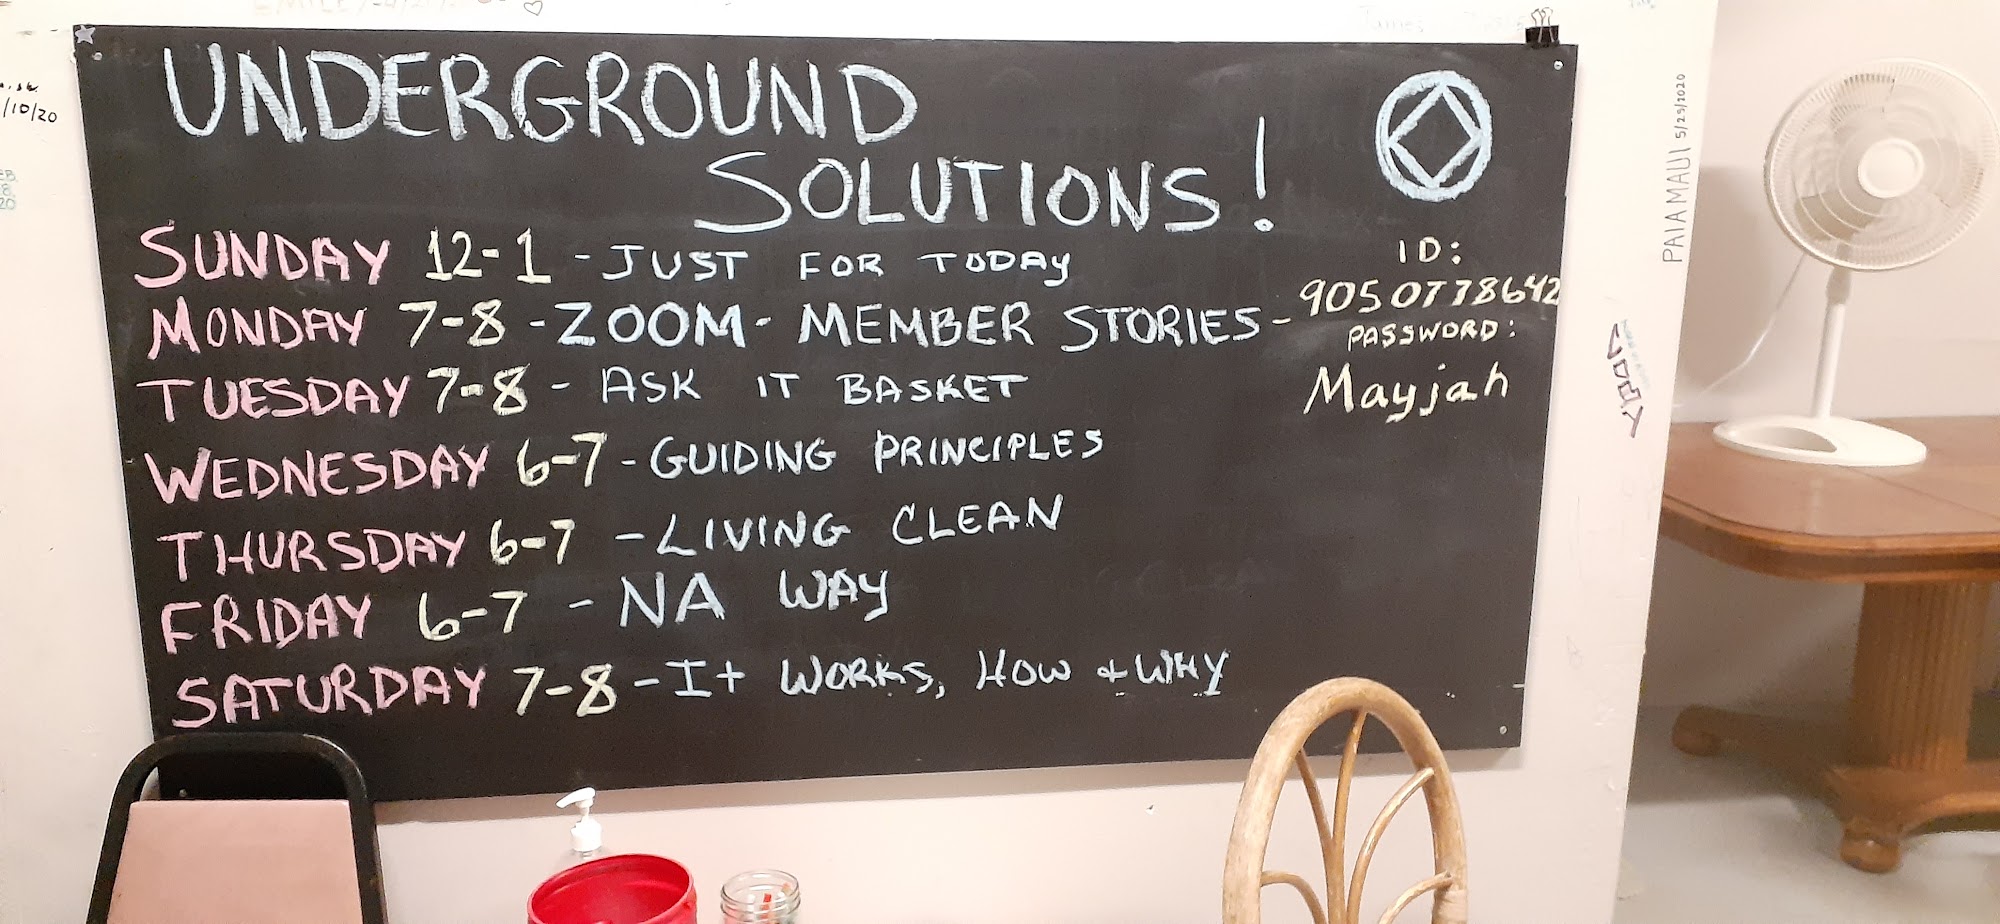 UNDERGROUND
SOLUTIONS!
SUNDAY 12-1 - JUST FOR TODAY
MONDAY 7-8 - ZOOM - MEMBER STORIES -
TUESDAY 7-8 - ASK IT BASKET
WEDNESDAY 6-7 - GUIDING PRINCIPLES
THURSDAY 6-7 - LIVING CLEAN
FRIDAY 6-7 - NA WAY
SATURDAY 7-8 - It WORKS, HOW + WHY
ID:
9050778642
PASSWORD:
Mayjah
/10/20
PAIA MAUI 5/25/2020